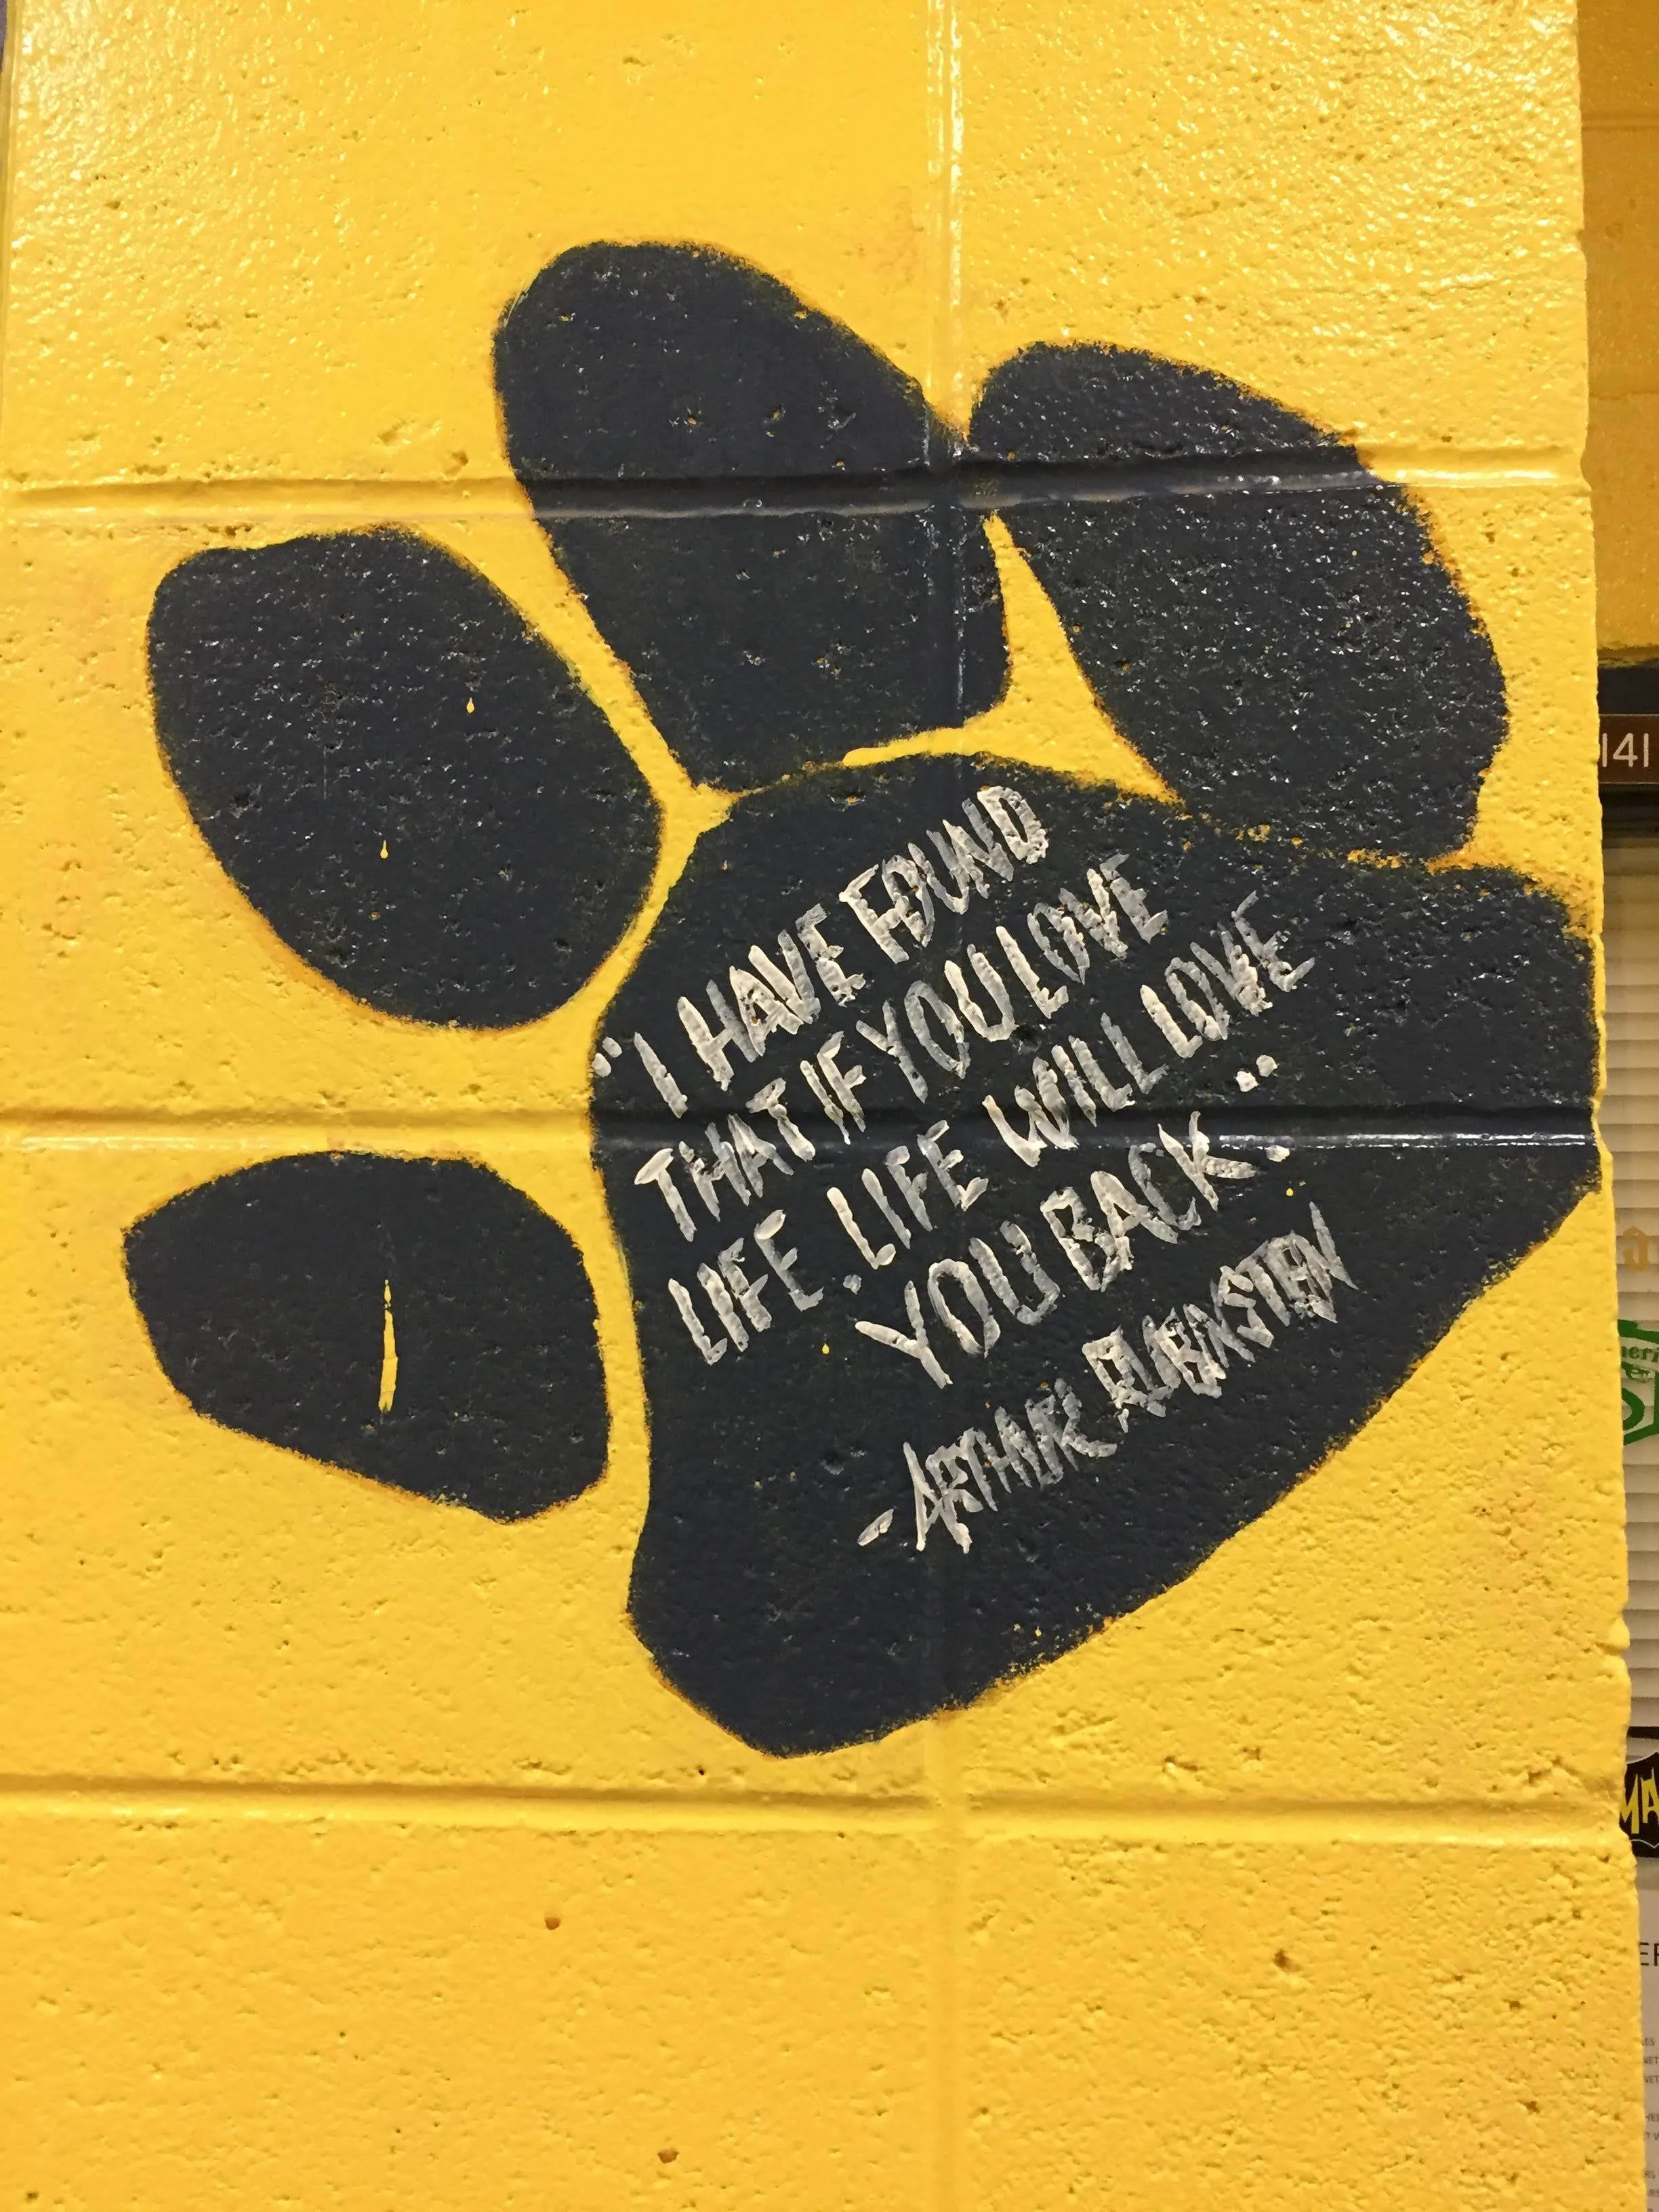 "I HAVE FOUND
THAT IF YOU LOVE
LIFE, LIFE WILL LOVE
YOU BACK."
-ARTHUR RUBINSTEIN
141
MA